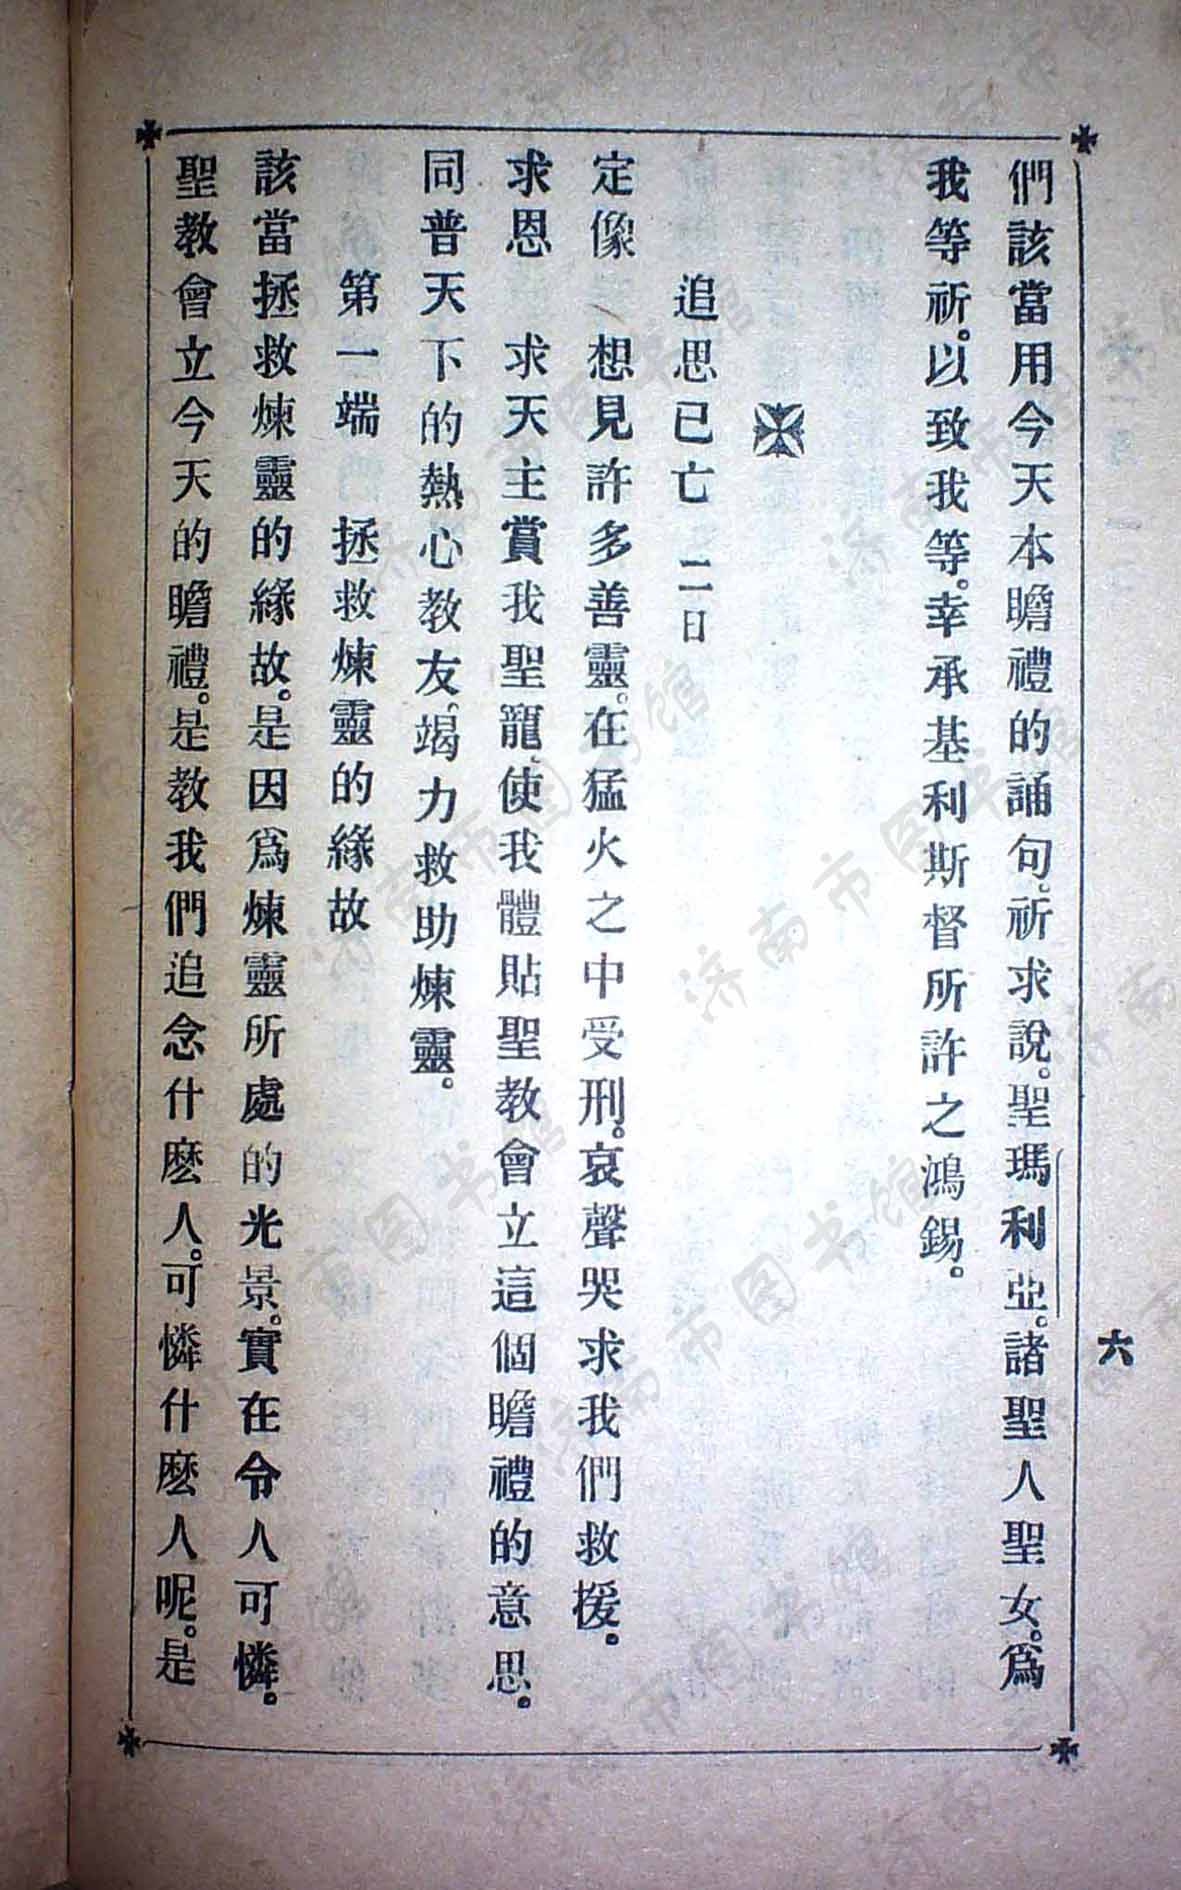 們該當用今天本瞻禮的誦句。祈求說。聖瑪利亞。諸聖人聖女。爲
我等祈。以致我等。幸承基利斯督所許之鴻錫。
追思已亡 二日
定像 想見許多善靈。在猛火之中受刑。哀聲哭求我們救援。
求恩 求天主賞我聖寵、使我體貼聖教會立這個瞻禮的意思。
同普天下的熱心教友、竭力救助煉靈。
第一端 拯救煉靈的緣故
該當拯救煉靈的緣故。是因爲煉靈所處的光景。實在令人可憐。
聖教會立今天的瞻禮。是教我們追念什麽人。可憐什麽人呢。是
六
济南市图书馆
济南市图书馆
济南市图书馆
济南市图书馆